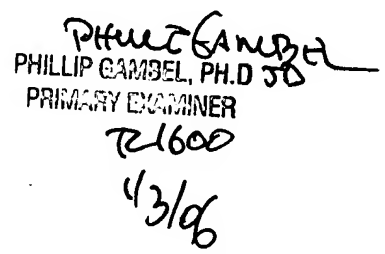 PHILLIP GAMBEL
PHILLIP GAMBEL, PH.D JD
PRIMARY EXAMINER
TC1600
1/3/06